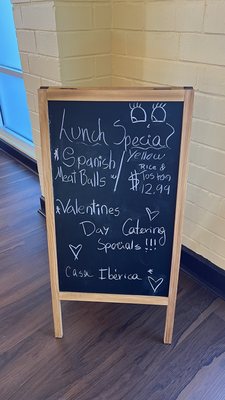 Lunch Special?
*Spanish
Meat Balls w/
Yellow
Rice &
Tostones
$12.99
*Valentines
Day Catering
Specials!!!
Casa Ibérica